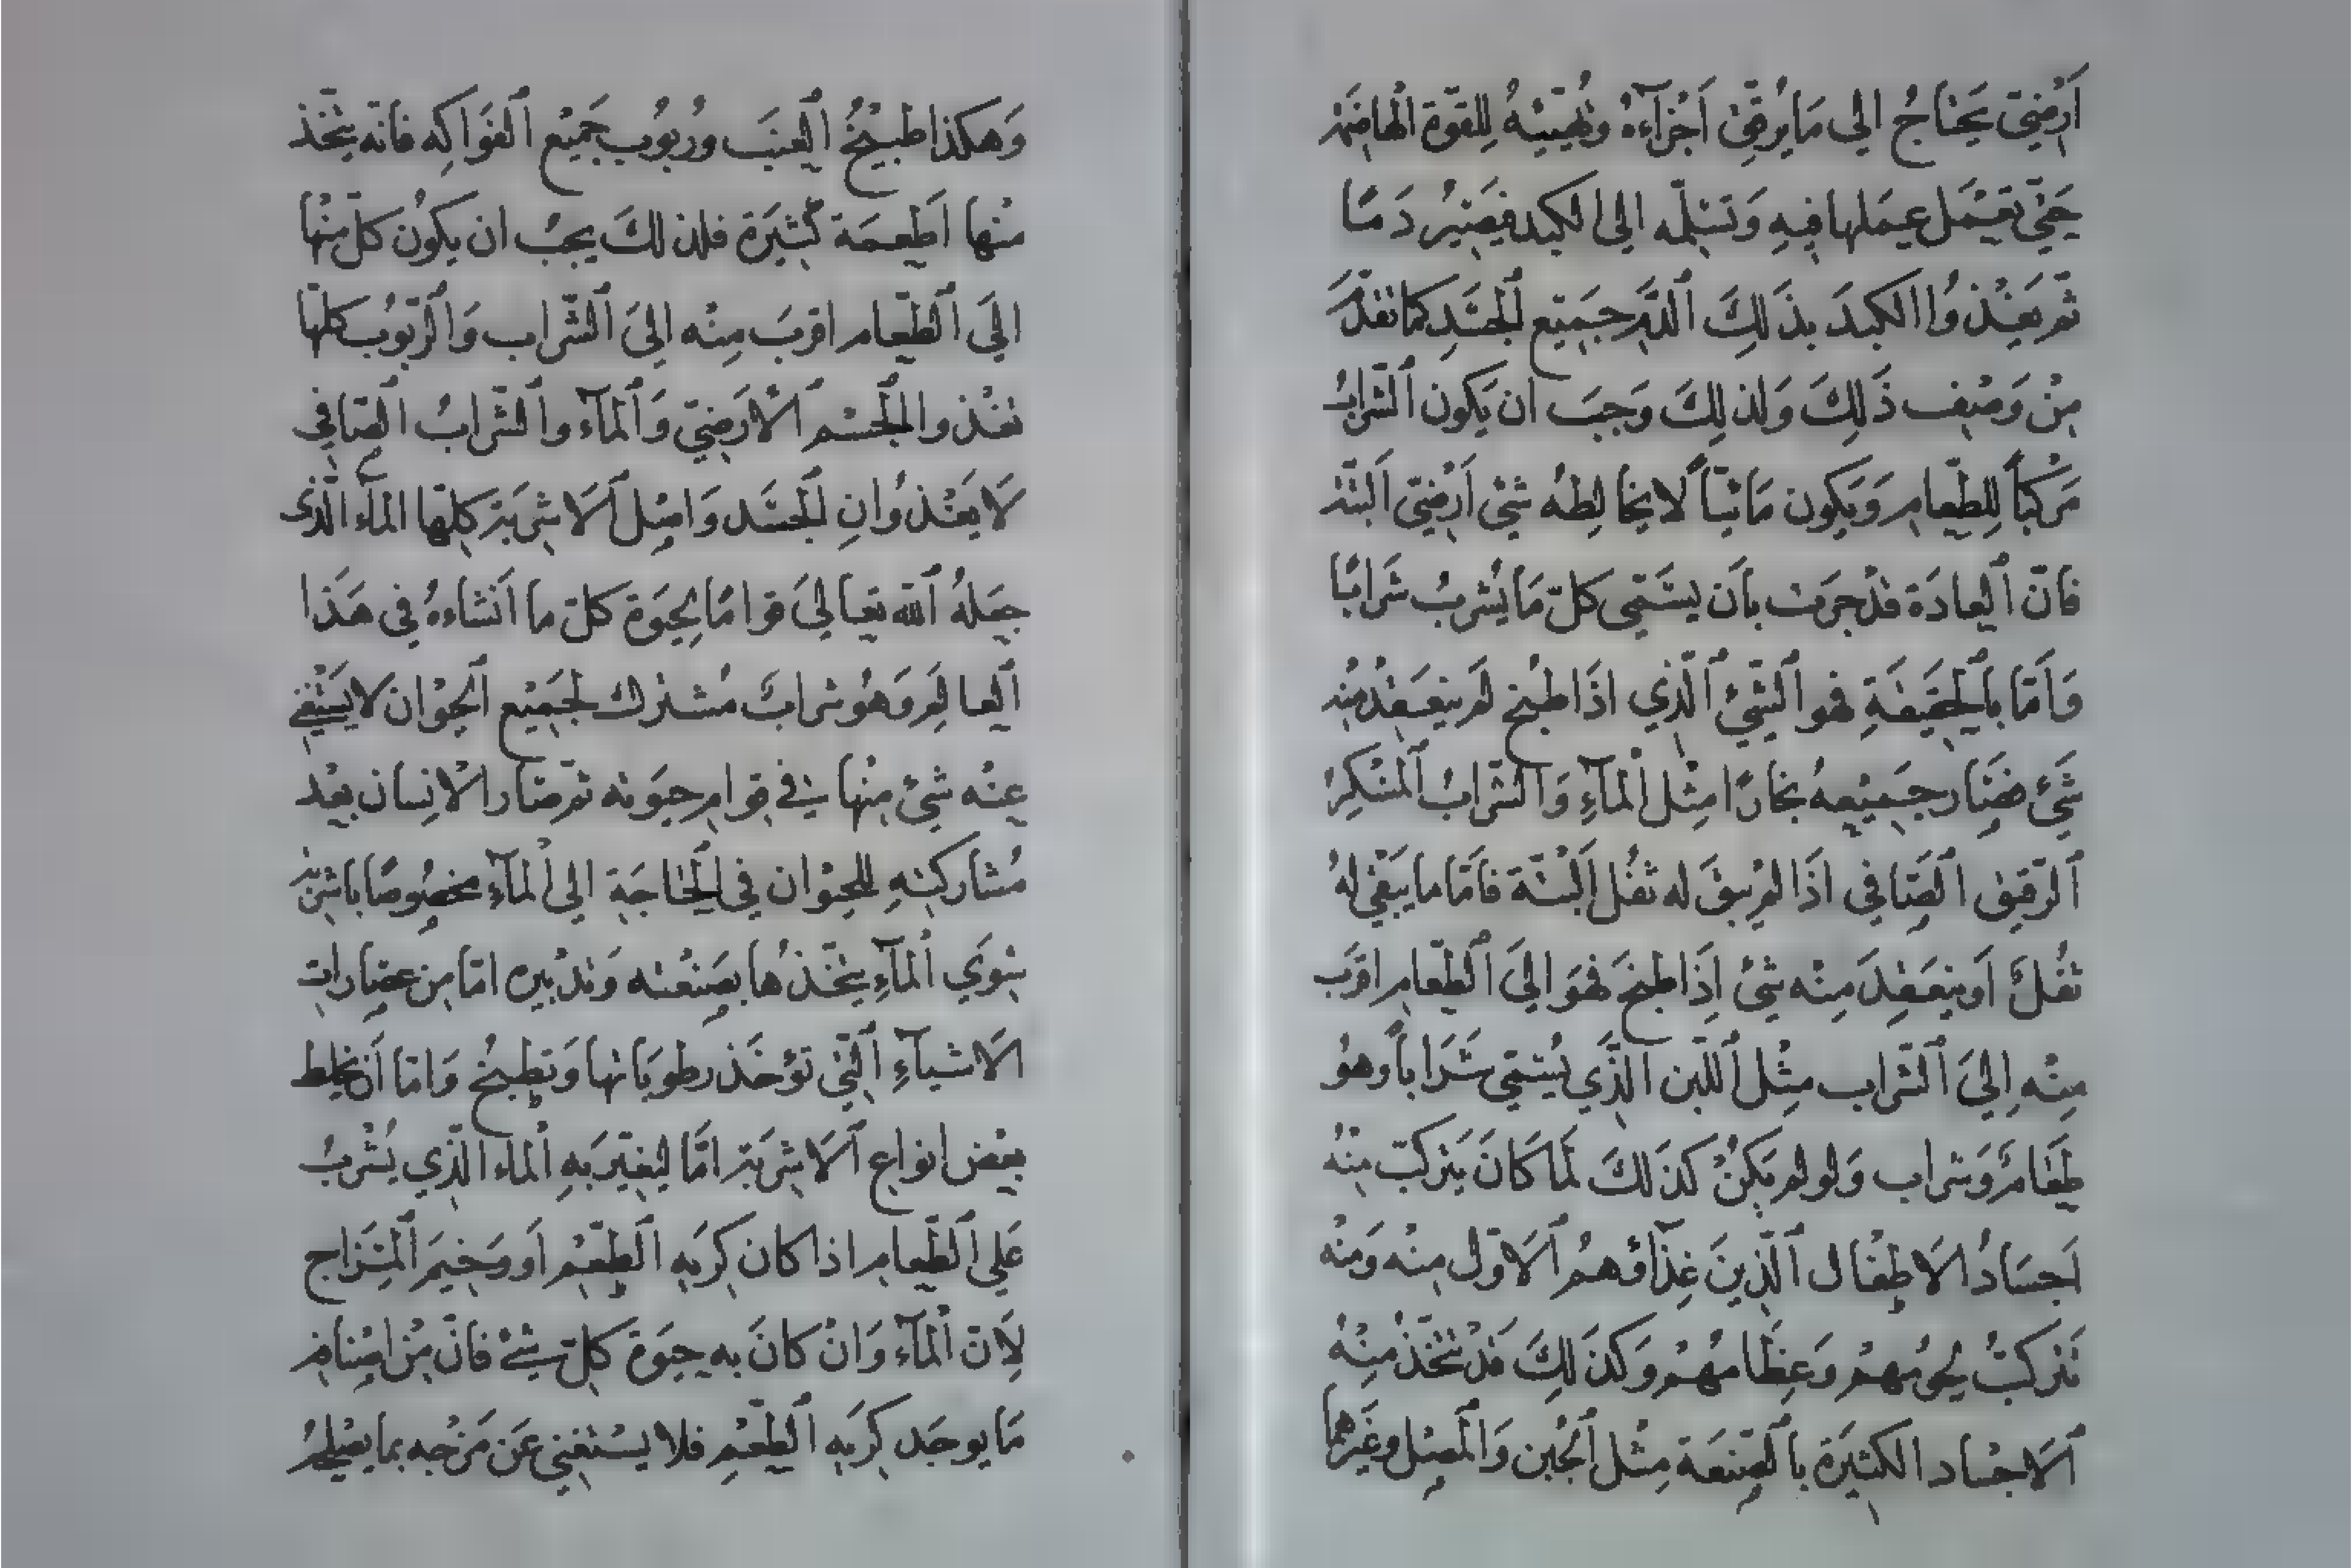 اَرْضِيّ يَحْتَاجُ الى مَا يُرَقِّقُ اَجْزَآءَهُ وَتُهَيِّئُهُ لِلقوّة الْهَاضِمَة
حَتّى تَعْمَل عَمَلها فِيهِ وَتَسَلّمه الى الكبد فيَصِيْرُ دَمًا
ثم تغذوا الكبدَ بذَلِكَ الدّم جَميع الجسَدِ كما تقدّمَ
مِنْ وَصْفِ ذَلِكَ وَلذلِكَ وَجبَ ان يَكون الشّرابُ
مَرْكبًا لِلطّعام وَيَكون مَائيّاً لا يخالِطهُ شئ اَرْضِيّ اَلبتّة
فانّ العادَة قدْ جرَت باَن يسَمّى كلّ مَا يُشربُ شَرابًا
وَاَمّا بالحَقيقَةِ فهو الشّئُ الّذي اذَا طبخ لم ينعَقِدْ منه
شَئ فصَار جَميْعهُ بخارًا مِثْل الْمآءِ وَالشّرابُ المُسْكِرُ
الرّقيق الصّافي اذَا لم يبقَ له ثفْل اَلبتّة فاَمّا ما يَبقى لهُ
ثفْلٌ اَو ينعَقِدَ مِنْه شئ اِذَا طبخَ فهوَ الىَ الطّعام اقربَ
مِنْه اِلىَ الشّراب مِثْل اللّبن الّذَي يُسَمّى شَرَاباً وهُو
طَعَامٌ وَشراب وَلو لم يكنْ كذَلكَ لَمَا كَانَ يَتركّب مِنْهُ
اَجسَادُ الاطفَال الّذِينَ غِذآؤهمُ الاوّل مِنْه وَمنْه
تَتركبُ لحُومُهمْ وَعِظامُهمْ وَكذَلِكَ قَدْ تتّخذُ مِنْهُ
الاجسَاد الكثيَرة بالصّنعَة مِثْل الجُبن وَالْمَصْل وغَيرهما
وَهكذا طبيْخُ العِنَب ورُبُوب جَميْع الفَوَاكِه فانّه يتّخذ
مْنها اَطعِمَة كثيَرة فلذلكَ يجبُ ان يكوُن كلّ مِنْها
الىَ الطّعام اقربَ مِنْه الىَ الشّراب وَالرّبُوب كلّها
تغذوا الجسْم الاَرضيّ وَالمآء والشّرابُ الصّافي
لاَ يَغْذوُانِ الجسَد وَاصْل الاَشربَة كلّها المآء الّذى
جعَلهُ الله تعَالىَ قوامًا لِحيَوة كلّ ما اَنشاءهُ في هَذا
العالَم وَهُو شرابٌ مُشتركٌ لجَميْع الحيْوان لا يَسْتغْنِي
عنْه شئ مِنْها في قوام حيوته ثم صَار الانسان بَعْد
مُشاركتِهِ للحيْوان في الحَاجَة الى المآءِ مخصُوصًا باشربَة
سِوَي المآءِ يتّخذهُا بصَنعْته وَتدْبيره امّا من عصَارات
الاشيآءِ الّتي تؤخَذ رطوباتها وَتطبخُ وَامّا اَن يخلط
بعْض انوَاع الاَشربَة امّا ليغيّرَ بهِ المآء الّذي يُشرْبُ
عَلي الطّعام اذا كان كريَه الطّعْم اَو وَخيَم المِزَاج
لاِنّ المآء وَانْ كانَ به حيوَة كلّ شئ فانّ مِنْ اصْنافِ
مَا يوجَد كريه الطّعْمِ فلا يسْتغنِي عَن مَزْجه بما يصْلحُ